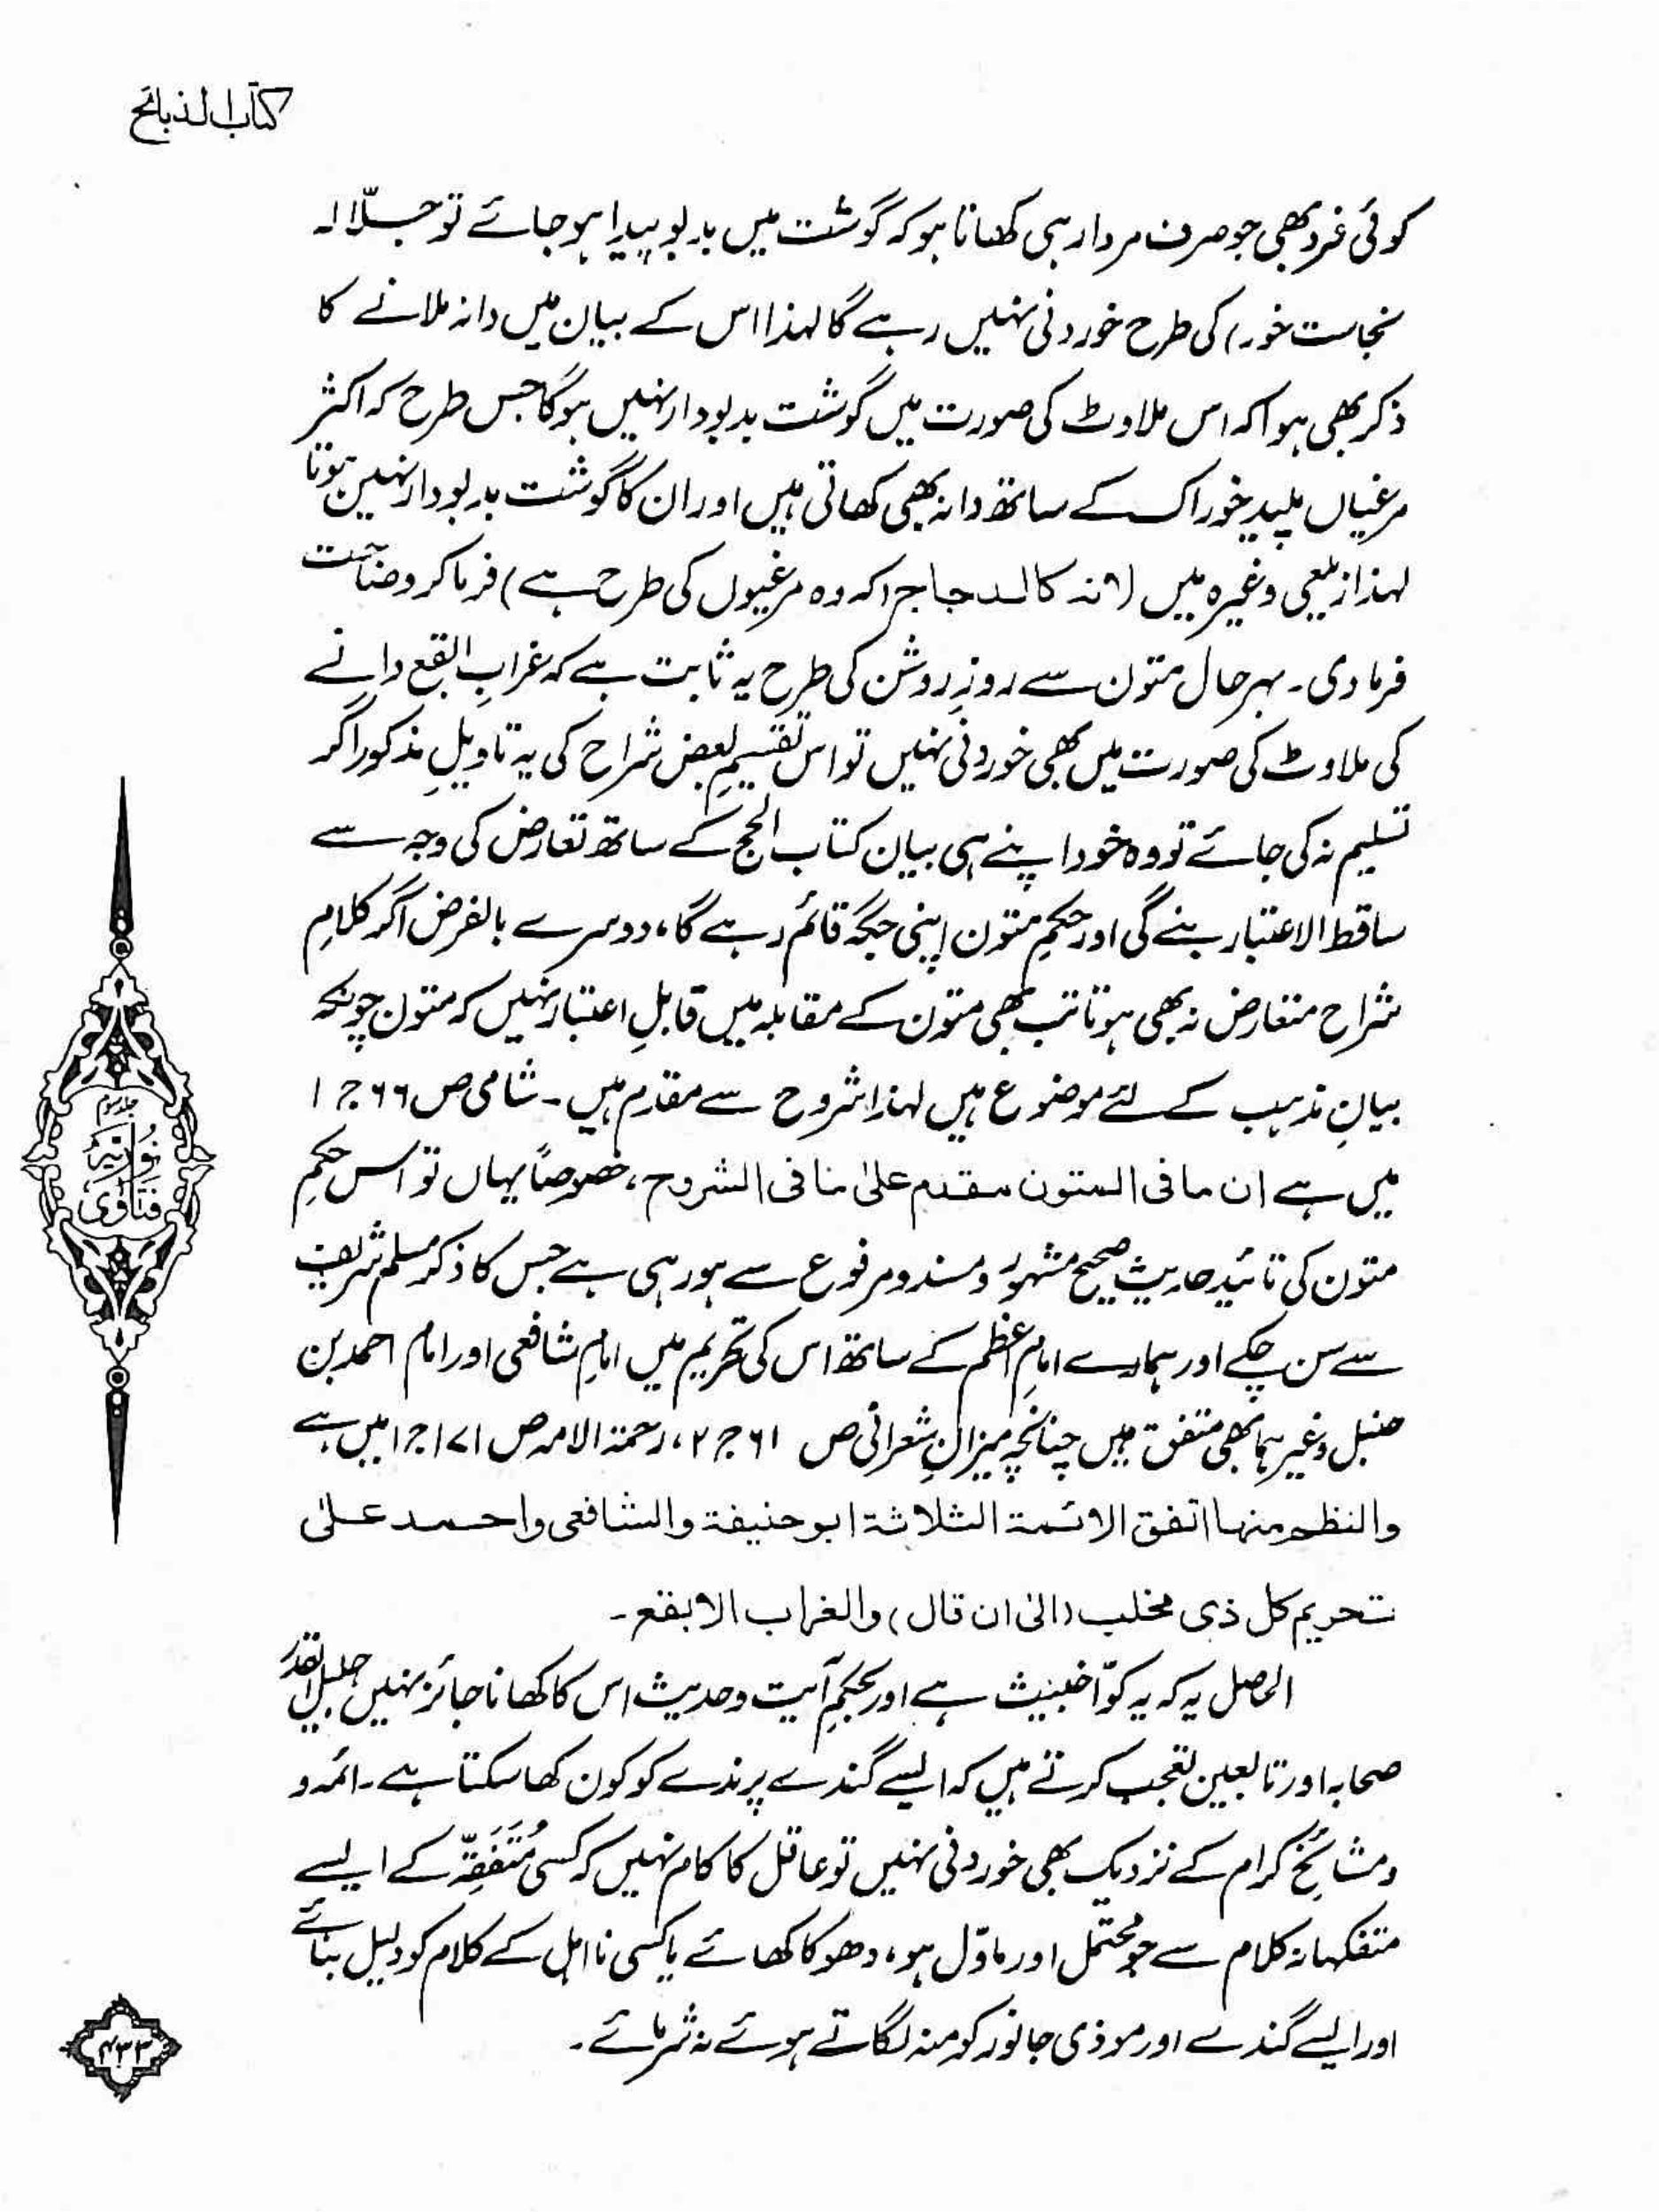 کتاب الذبائح
کوئی فرد بھی جو صرف مردار ہی کھاتا ہو کہ گوشت میں بدبو پیدا ہو جائے تو جلّالہ
نجاست خور) کی طرح خوردنی نہیں رہے گا لہذا اس کے بیان میں دانہ ملانے کا
ذکر بھی ہوا کہ اس ملاوٹ کی صورت میں گوشت بدبودار نہیں ہوگا جس طرح کہ اکثر
مرغیاں پلید خوراک کے ساتھ دانہ بھی کھاتی ہیں اور ان کا گوشت بدبودار نہیں ہوتا
لہذا زیلعی وغیرہ میں (لانہ کالدجاج (کہ وہ مرغیوں کی طرح ہے) فرما کر وضاحت
فرما دی۔ بہر حال متون سے روزِ روشن کی طرح یہ ثابت ہے کہ غرابِ ابقع دانے
کی ملاوٹ کی صورت میں بھی خوردنی نہیں تو اس تقسیمِ بعض شراح کی یہ تاویلِ مذکور اگر
تسلیم نہ کی جائے تو وہ خود اپنے ہی بیان کتاب الحج کے ساتھ تعارض کی وجہ سے
ساقط الاعتبار بنے گی اور حکمِ متون اپنی جگہ قائم رہے گا، دوسرے بالفرض اگر کلامِ
شراح متعارض نہ بھی ہوتا تب بھی متون کے مقابلہ میں قابلِ اعتبار نہیں کہ متون چونکہ
بیانِ مذہب کے لئے موضوع ہیں لہذا شروح سے مقدم ہیں۔ شامی ص ۶۶ ج ۱
میں ہے ان ما فی المتون مقدم علیٰ ما فی الشروح، خصوصاً یہاں تو اس حکمِ
متون کی تائید حدیثِ صحیح مشہور و مسند و مرفوع سے ہو رہی ہے جس کا ذکر مسلم شریف
سے سن چکے اور ہمارے امامِ اعظم کے ساتھ اس کی تحریم میں امامِ شافعی اور امام احمد بن
حنبل وغیرہما بھی متفق ہیں چنانچہ میزانِ شعرانی ص ۶۱ ج ۲، رحمۃ الامہ ص ۱۷۱ ج ۱ میں ہے
والنظم منہا اتفق الائمۃ الثلاثۃ ابو حنیفۃ والشافعی واحمد علیٰ
تحریم کل ذی مخلب (الیٰ ان قال) والغراب الابقع۔
الحاصل یہ کہ یہ کوّا خبیث ہے اور بحکمِ آیت و حدیث اس کا کھانا جائز نہیں جلیل القدر
صحابہ اور تابعین تعجب کرتے ہیں کہ ایسے گندے پرندے کو کون کھا سکتا ہے۔ ائمہ و
ومشائخِ کرام کے نزدیک بھی خوردنی نہیں تو عاقل کا کام نہیں کہ کسی مُتَفَقِّہ کے ایسے
متفکہانہ کلام سے جو محتمل اور ماوّل ہو، دھوکا کھائے یا کسی نااہل کے کلام کو دلیل بنائے
اور ایسے گندے اور موذی جانور کو منہ لگاتے ہوئے نہ شرمائے۔
جلد سوم
نوریہ
فتاویٰ
۴۳۳